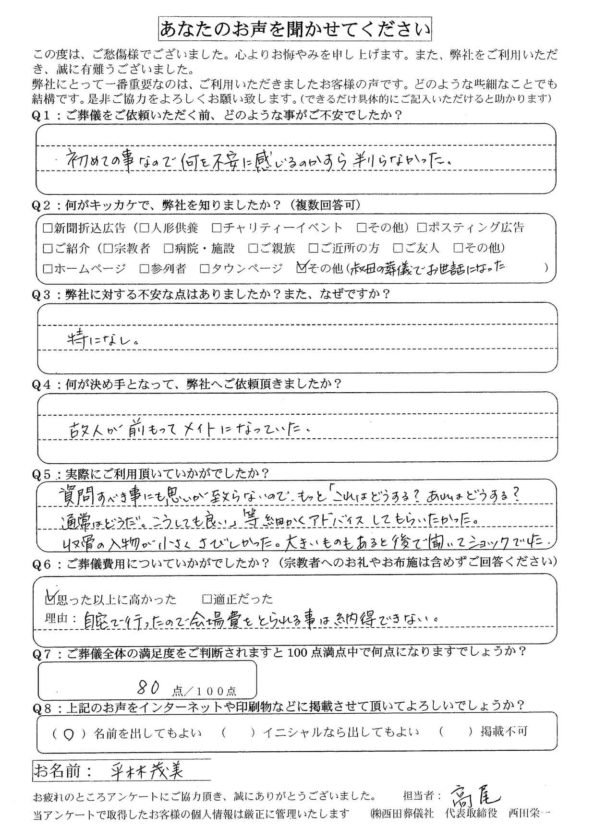 あなたのお声を聞かせてください
この度は、ご愁傷様でございました。心よりお悔やみを申し上げます。また、弊社をご利用いただ
き、誠に有難うございました。
弊社にとって一番重要なのは、ご利用いただきましたお客様の声です。どのような些細なことでも
結構です。是非ご協力をよろしくお願い致します。(できるだけ具体的にご記入いただけると助かります)
Q1：ご葬儀をご依頼いただく前、どのような事がご不安でしたか？
初めての事なので何を不安に感じるのかすら判らなかった。
Q2：何がキッカケで、弊社を知りましたか？（複数回答可）
□新聞折込広告（□人形供養 □チャリティーイベント □その他）□ポスティング広告
□ご紹介（□宗教者 □病院・施設 □ご親族 □ご近所の方 □ご友人 □その他）
□ホームページ □参列者 □タウンページ ☑その他(叔田の葬儀でお世話になった )
Q3：弊社に対する不安な点はありましたか？また、なぜですか？
特になし。
Q4：何が決め手となって、弊社へご依頼頂きましたか？
故人が前もってメイトになっていた。
Q5：実際にご利用頂いていかがでしたか？
質問すべき事にも思いが至らないので、もっと「これはどうする？あれはどうする？
通常はどうだ。こうしても良い」等細かくアドバイスしてもらいたかった。
収骨の入物が小さくさびしかった。大きいものもあると後で聞いてショックでした。
Q6：ご葬儀費用についていかがでしたか？（宗教者へのお礼やお布施は含めずご回答ください）
☑思った以上に高かった □適正だった
理由：自宅で行ったので会場費をとられる事は納得できない。
Q7：ご葬儀全体の満足度をご判断されますと100点満点中で何点になりますでしょうか？
80 点／100点
Q8：上記のお声をインターネットや印刷物などに掲載させて頂いてよろしいでしょうか？
（〇）名前を出してもよい （ ）イニシャルなら出してもよい （ ）掲載不可
お名前： 平林茂美
お疲れのところアンケートにご協力頂き、誠にありがとうございました。 担当者：高尾
当アンケートで取得したお客様の個人情報は厳正に管理いたします ㈱西田葬儀社 代表取締役 西田栄一